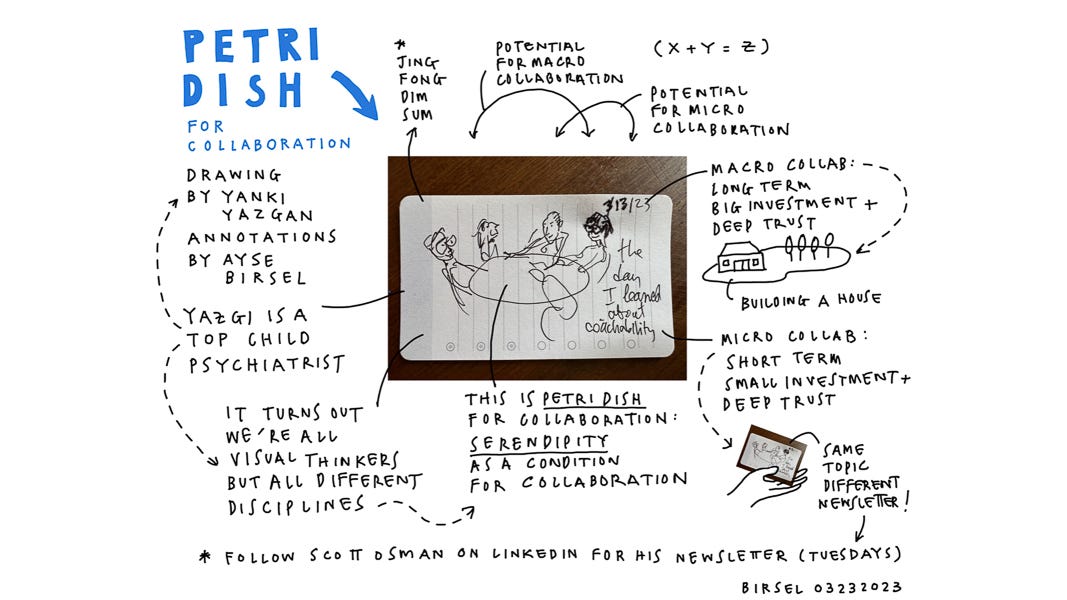 PETRI
DISH
FOR
COLLABORATION
DRAWING
BY YANKI
YAZGAN
ANNOTATIONS
BY AYSE
BIRSEL
YAZGI IS A
TOP CHILD
PSYCHIATRIST
IT TURNS OUT
WE'RE ALL
VISUAL THINKERS
BUT ALL DIFFERENT
DISCIPLINES
*
JING
FONG
DIM
SUM
POTENTIAL
FOR MACRO
COLLABORATION
(X+Y=Z)
POTENTIAL
FOR MICRO
COLLABORATION
3/13/23
the
day
I learned
about
coachability
THIS IS PETRI DISH
FOR COLLABORATION:
SERENDIPITY
AS A CONDITION
FOR COLLABORATION
MACRO COLLAB:
LONG TERM
BIG INVESTMENT +
DEEP TRUST
BUILDING A HOUSE
MICRO COLLAB:
SHORT TERM
SMALL INVESTMENT+
DEEP TRUST
SAME
TOPIC
DIFFERENT
NEWSLETTER!
* FOLLOW SCOTT OSMAN ON LINKEDIN FOR HIS NEWSLETTER (TUESDAYS)
BIRSEL 03232023